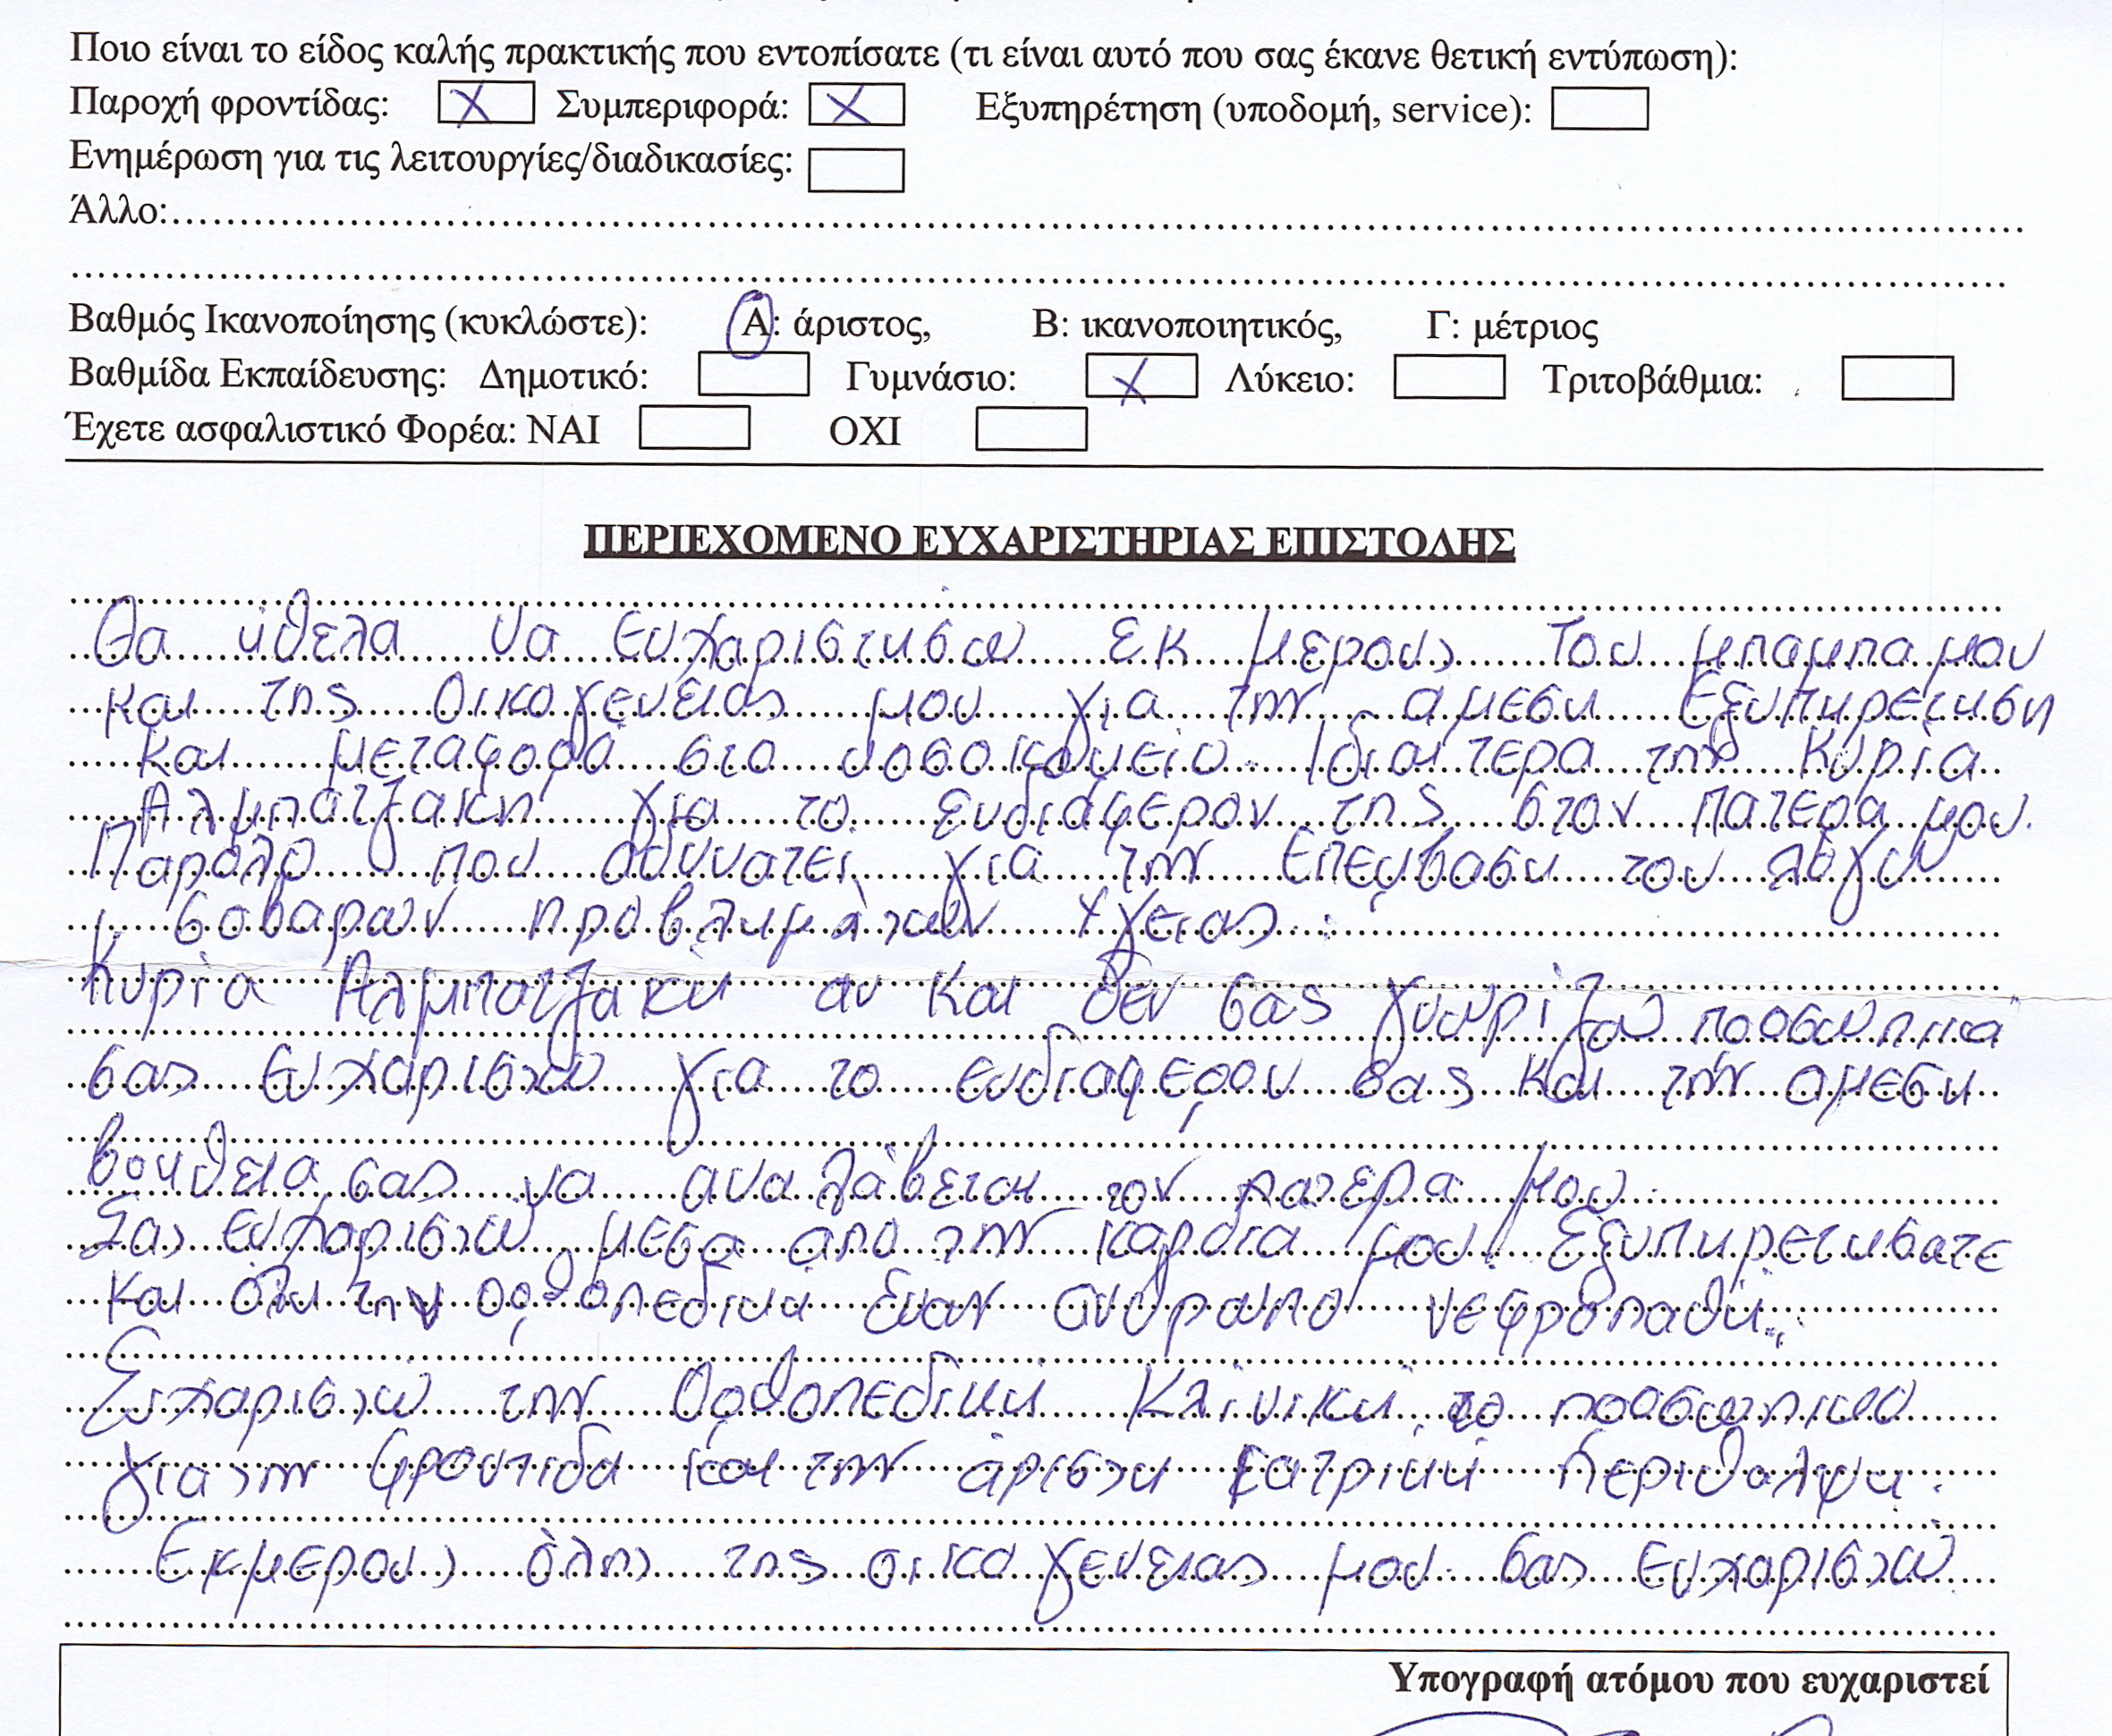 Ποιο είναι το είδος καλής πρακτικής που εντοπίσατε (τι είναι αυτό που σας έκανε θετική εντύπωση):
Παροχή φροντίδας: X Συμπεριφορά: X Εξυπηρέτηση (υποδομή, service):
Ενημέρωση για τις λειτουργίες/διαδικασίες:
Άλλο:
Βαθμός Ικανοποίησης (κυκλώστε): Α: άριστος, Β: ικανοποιητικός, Γ: μέτριος
Βαθμίδα Εκπαίδευσης: Δημοτικό: Γυμνάσιο: X Λύκειο: Τριτοβάθμια:
Έχετε ασφαλιστικό Φορέα: ΝΑΙ ΟΧΙ
ΠΕΡΙΕΧΟΜΕΝΟ ΕΥΧΑΡΙΣΤΗΡΙΑΣ ΕΠΙΣΤΟΛΗΣ
Θα ήθελα να Ευχαριστησω εκ μερους του μπαμπα μου
και της οικογενειας μου για την αμεση Εξυπηρετηση
και μεταφορά στο νοσοκομείο. Ιδιαιτερα την Κυρία
Αλμπατζακη για το ενδιαφερον της στον πατερα μου.
Παρόλο που αδυνατει για την επεμβαση του λόγω
σοβαρων προβλημάτων Υγειας.
Κυρία Αλμπατζακη αν και δεν σας γνωρίζω προσωπικα
σας Ευχαριστω για το ενδιαφερον σας και την αμεση
βοηθεια σας να αναλάβεται τον πατερα μου.
Σας ευχαριστω μεσα απο την καρδια μου. Εξυπηρετησατε
και όλη την ορθοπεδικη εναν ανθρωπο νεφροπαθη.
Ευχαριστω την Ορθοπεδικη Κλινικη, το προσωπικο
για την φροντιδα και την άριστη ιατρικη περιθαλψη.
Εκμερους όλης της οικογενειας μου σας ευχαριστω
Υπογραφή ατόμου που ευχαριστεί